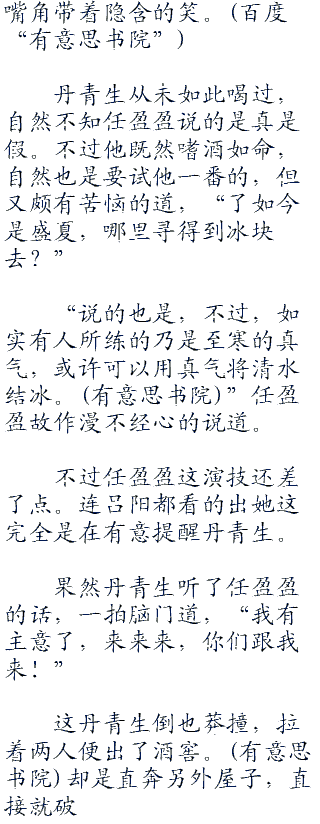 嘴角带着隐含的笑。(百度
“有意思书院”)
丹青生从未如此喝过，
自然不知任盈盈说的是真是
假。不过他既然嗜酒如命，
自然也是要试他一番的，但
又颇有苦恼的道，“了如今
是盛夏，哪里寻得到冰块
去？”
“说的也是，不过，如
实有人所练的乃是至寒的真
气，或许可以用真气将清水
结冰。(有意思书院)”任盈
盈故作漫不经心的说道。
不过任盈盈这演技还差
了点。连吕阳都看的出她这
完全是在有意提醒丹青生。
果然丹青生听了任盈盈
的话，一拍脑门道，“我有
主意了，来来来，你们跟我
来！”
这丹青生倒也莽撞，拉
着两人便出了酒窖。(有意思
书院)却是直奔另外屋子，直
接就破